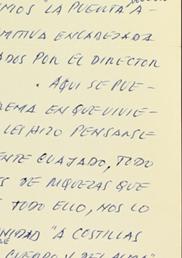 IMOS LA PUERTA A-
MITIVA ENCABEZADA
ADOS POR EL DIRECTOR
. AQUI SE PUE-
REMA EN QUE VIVIE-
LES HIZO PENSAR SE
ENTE CUAJADO, TODO
S DE RIQUEZAS QUE
E TODO ELLO, NOS LO
NIDAD "A COSTILLAS
CUERPO Y DEL ALMA"